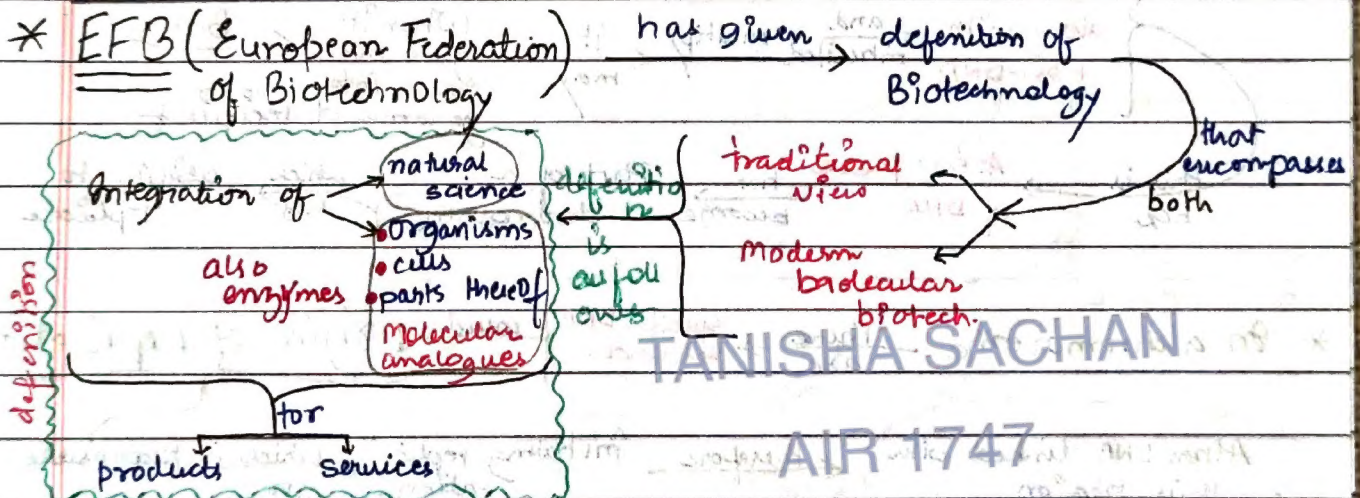 * EFB (European Federation of Biotechnology) has given → defenition of Biotechnology
that encompasses both
traditional view
Modern
biotech.
defenition is as follows
Integration of
natural science
• organisms
• cells
• parts thereof
Molecular analogues
also enzymes
defenition
for
products services
TANISHA SACHAN
AIR 1747